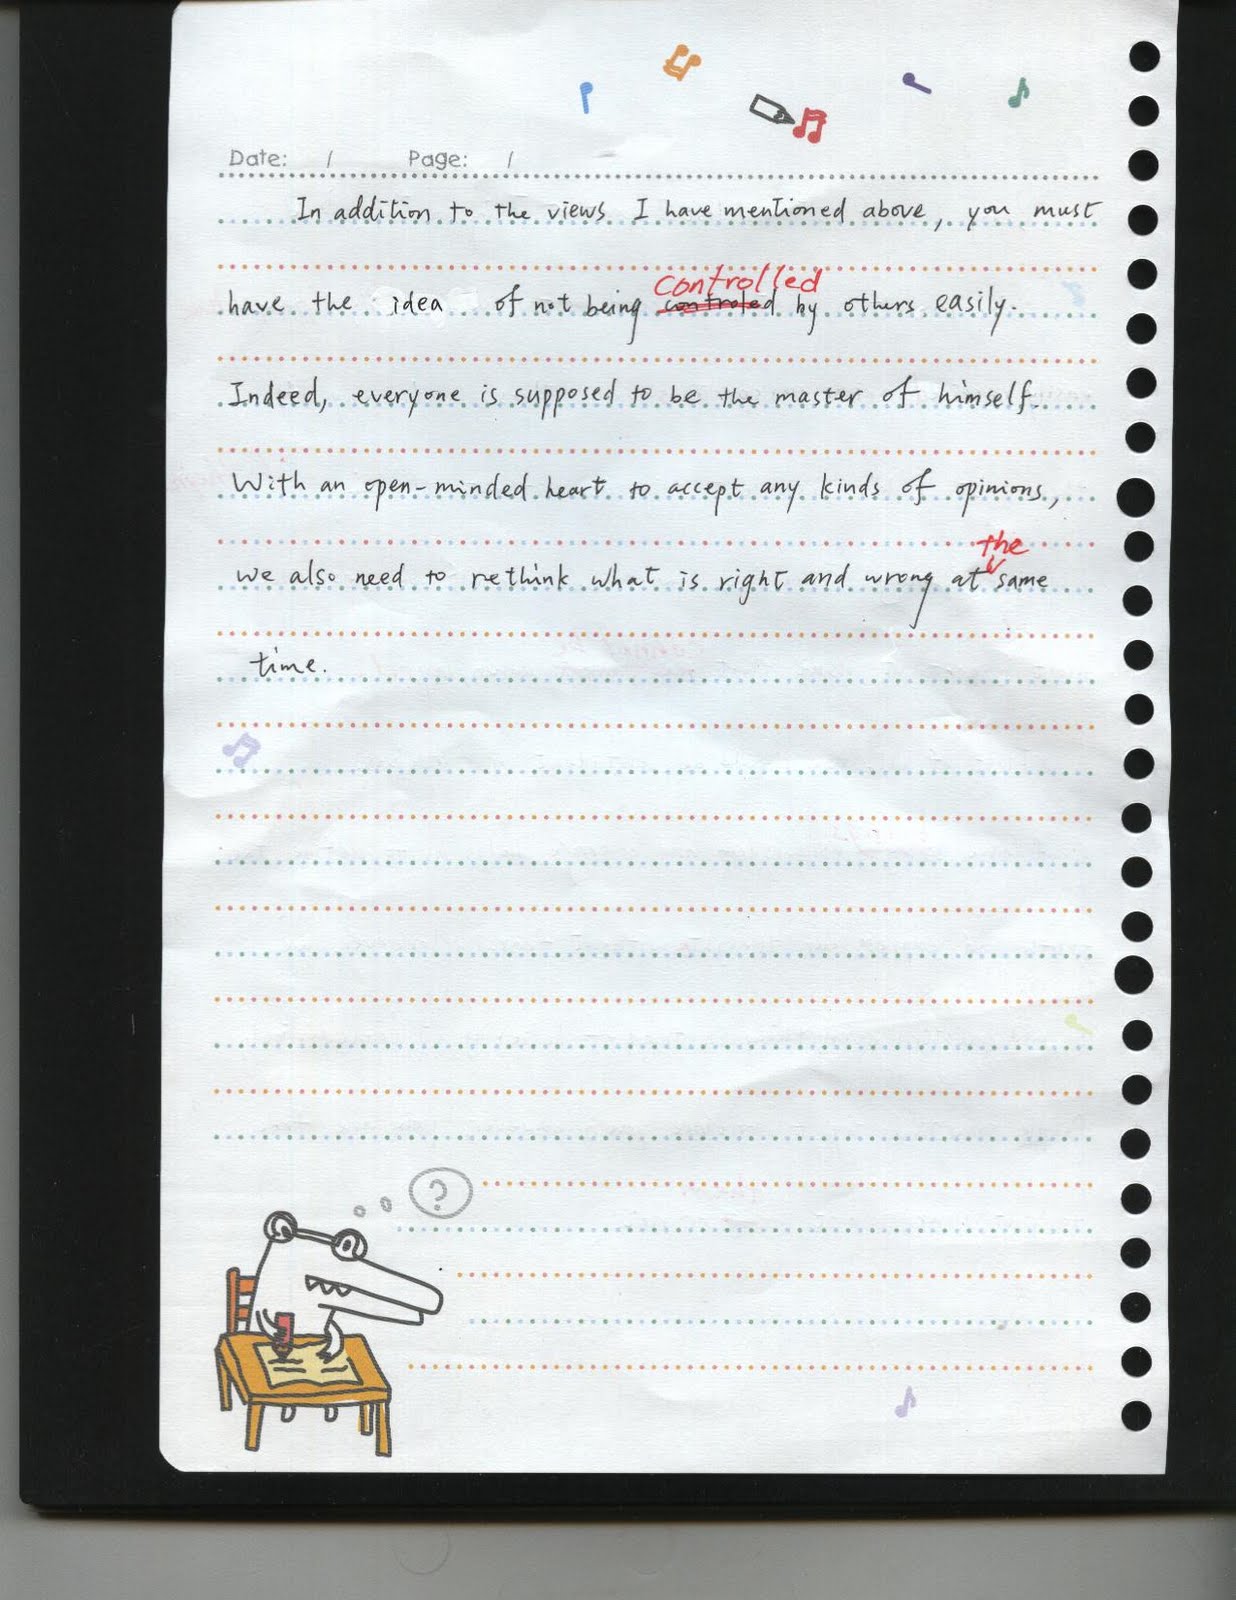 Date: / Page: /
In addition to the views I have mentioned above, you must
controlled
have the idea of not being controled by others easily.
Indeed, everyone is supposed to be the master of himself.
With an open-minded heart to accept any kinds of opinions,
the
we also need to rethink what is right and wrong at same
time.
?